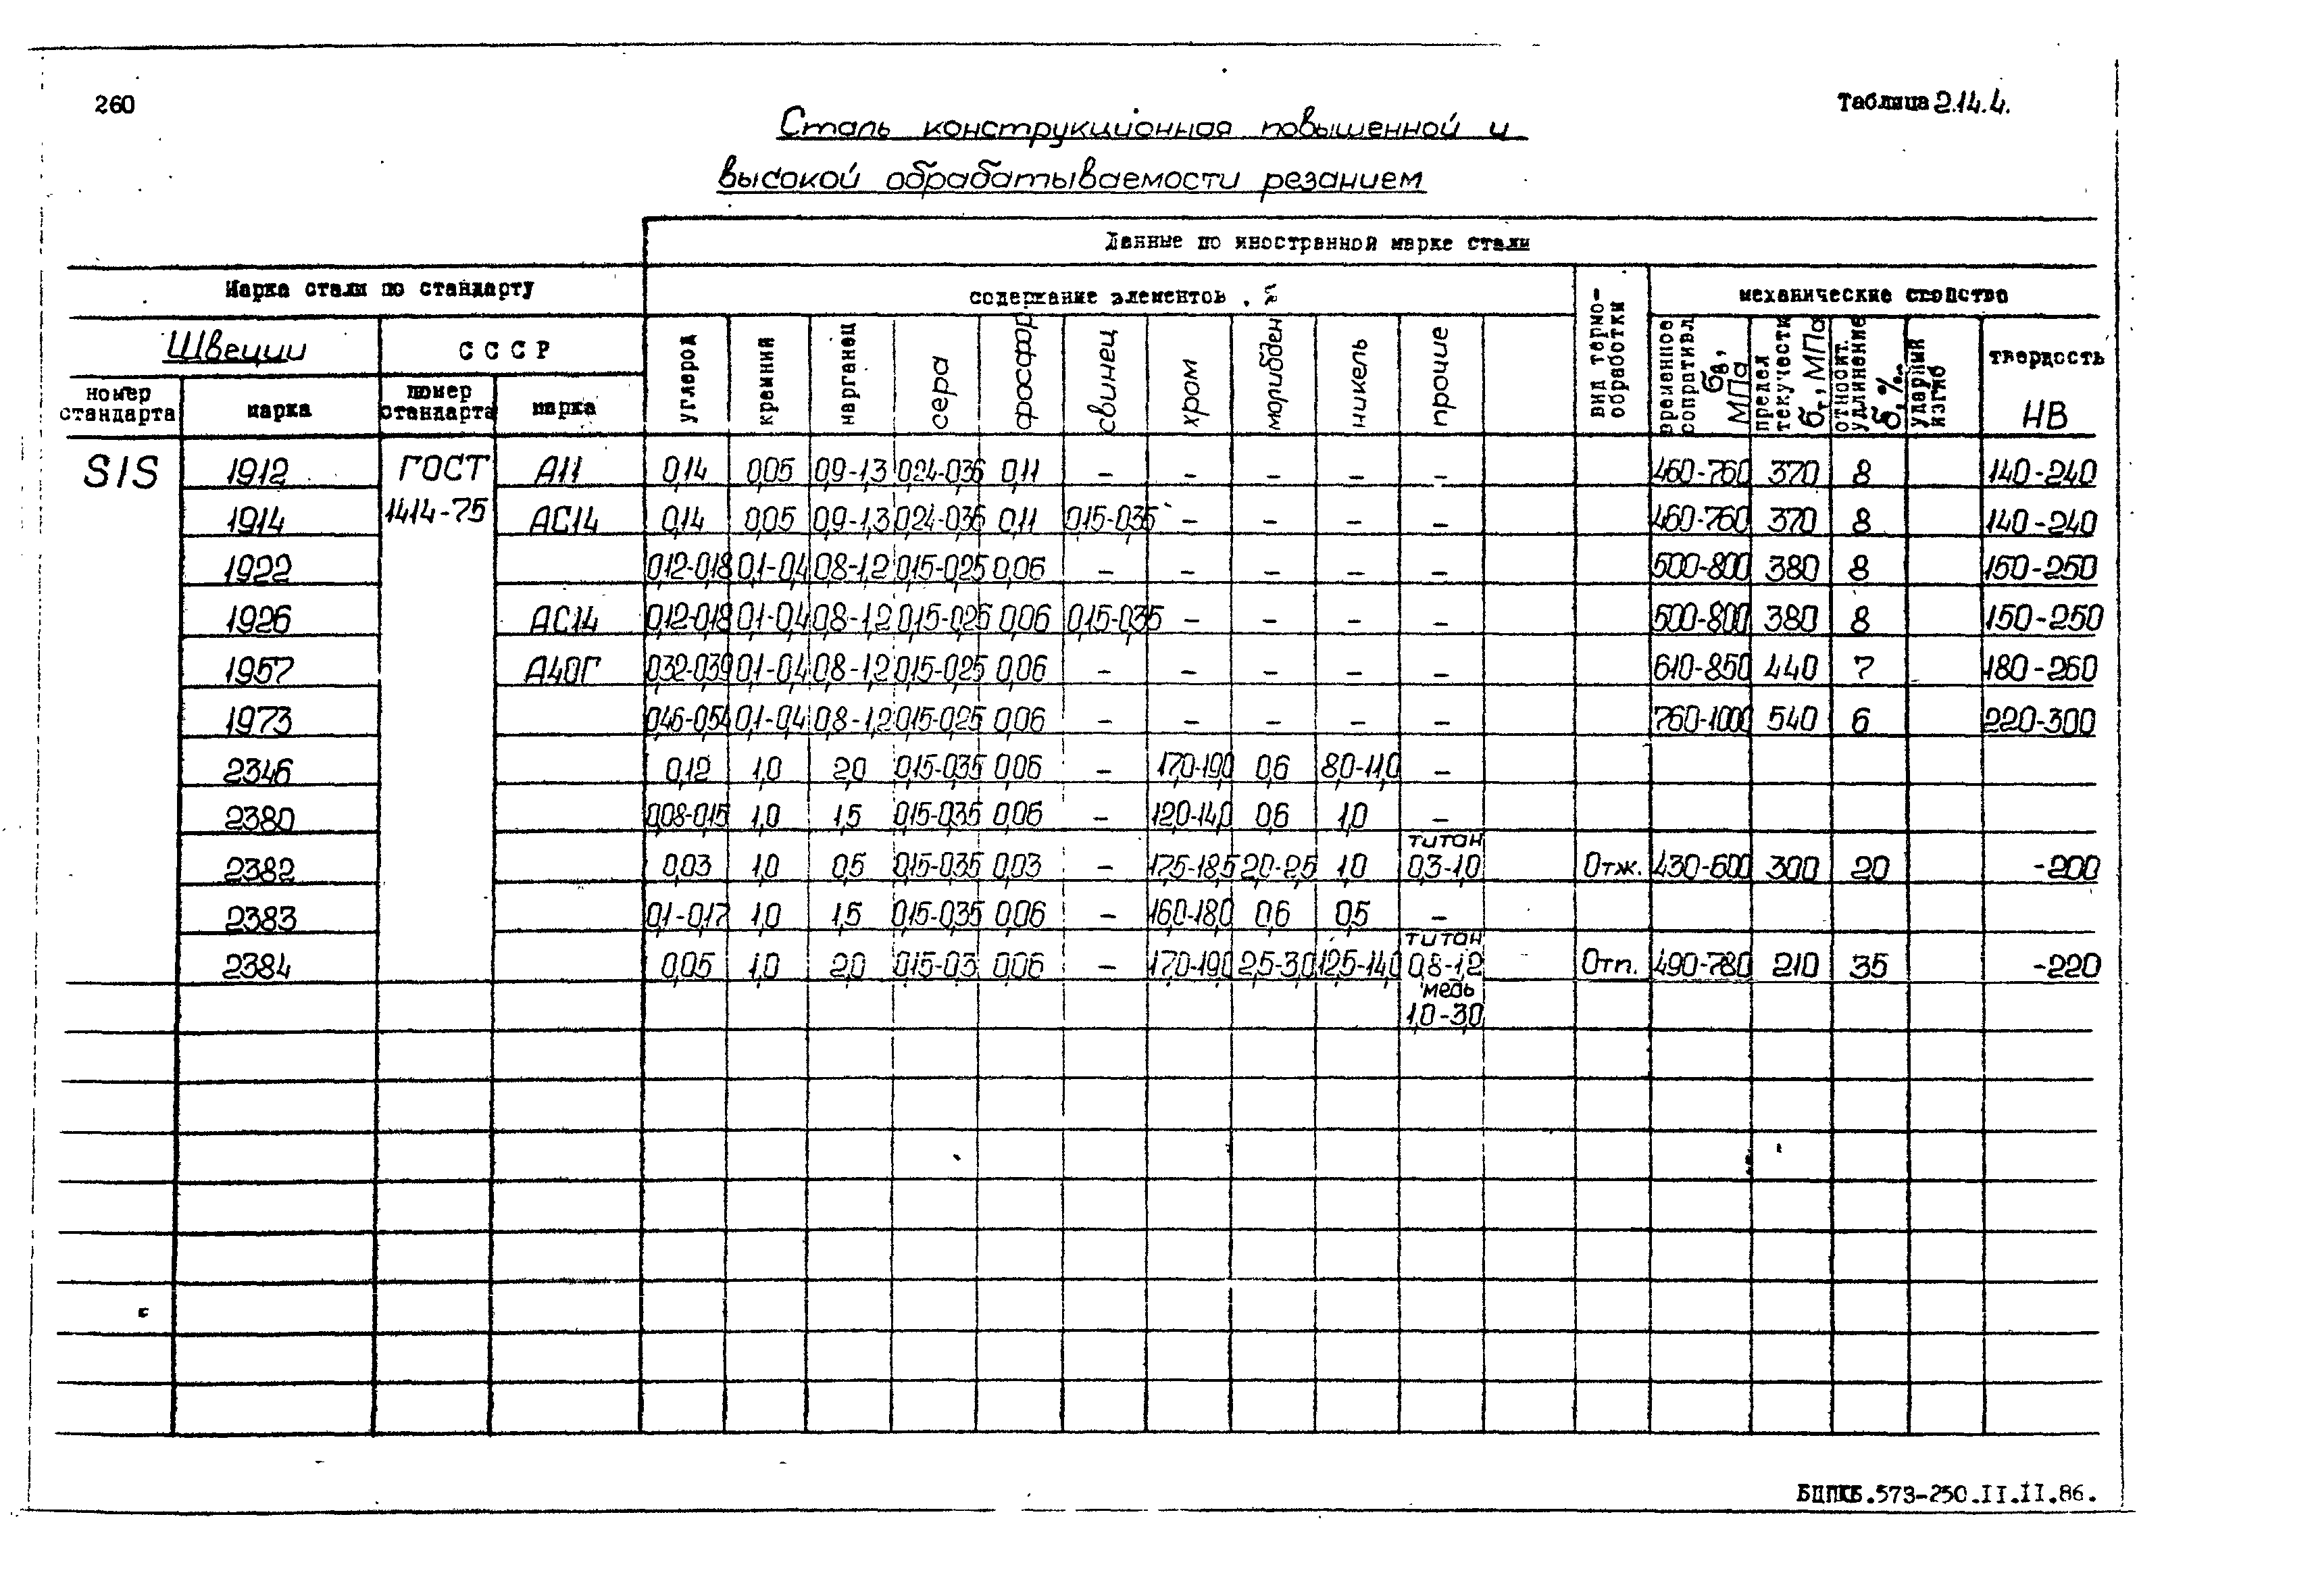 260
Таблица 2.14.4.
Сталь конструкционная повышенной и
высокой обрабатываемости резанием
Данные по иностранной марке стали
Марка стали по стандарту
содержание элементов, %
вид термо-обработки
механические свойства
Швеции
СССР
углерод
кремний
марганец
сера
фосфор
свинец
хром
молибден
никель
прочие
временное сопротивл. σв, МПа
предел текучести σт, МПа
относит. удлинение δ, %
ударный изгиб
твердость HB
номер стандарта
марка
номер стандарта
марка
SIS 1912 ГОСТ А11 0,14 0,05 0,9-1,3 0,24-0,36 0,11 – – – – – 460-760 370 8 140-240
1914 1414-75 АС14 0,14 0,05 0,9-1,3 0,24-0,36 0,11 0,15-0,35 – – – – 460-760 370 8 140-240
1922 0,12-0,18 0,1-0,4 0,8-1,2 0,15-0,25 0,06 – – – – – 500-800 380 8 150-250
1926 АС14 0,12-0,18 0,1-0,4 0,8-1,2 0,15-0,25 0,06 0,15-0,35 – – – – 500-800 380 8 150-250
1957 А40Г 0,32-0,39 0,1-0,4 0,8-1,2 0,15-0,25 0,06 – – – – – 610-850 440 7 180-260
1973 0,46-0,54 0,1-0,4 0,8-1,2 0,15-0,25 0,06 – – – – – 760-1000 540 6 220-300
2346 0,12 1,0 2,0 0,15-0,35 0,06 – 17,0-19,0 0,6 8,0-11,0 –
2380 0,08-0,15 1,0 1,5 0,15-0,35 0,06 – 12,0-14,0 0,6 1,0 –
титан
2382 0,03 1,0 0,5 0,15-0,35 0,03 – 17,5-18,5 2,0-2,5 1,0 0,3-1,0 Отж. 430-600 300 20 -200
2383 0,1-0,17 1,0 1,5 0,15-0,35 0,06 – 16,0-18,0 0,6 0,5 –
титан
2384 0,05 1,0 2,0 0,15-0,3 0,06 – 17,0-19,0 2,5-3,0 12,5-14,0 0,8-1,2 Отп. 490-780 210 35 -220
медь
1,0-3,0
БЦПКБ.573-250.II.II.86.